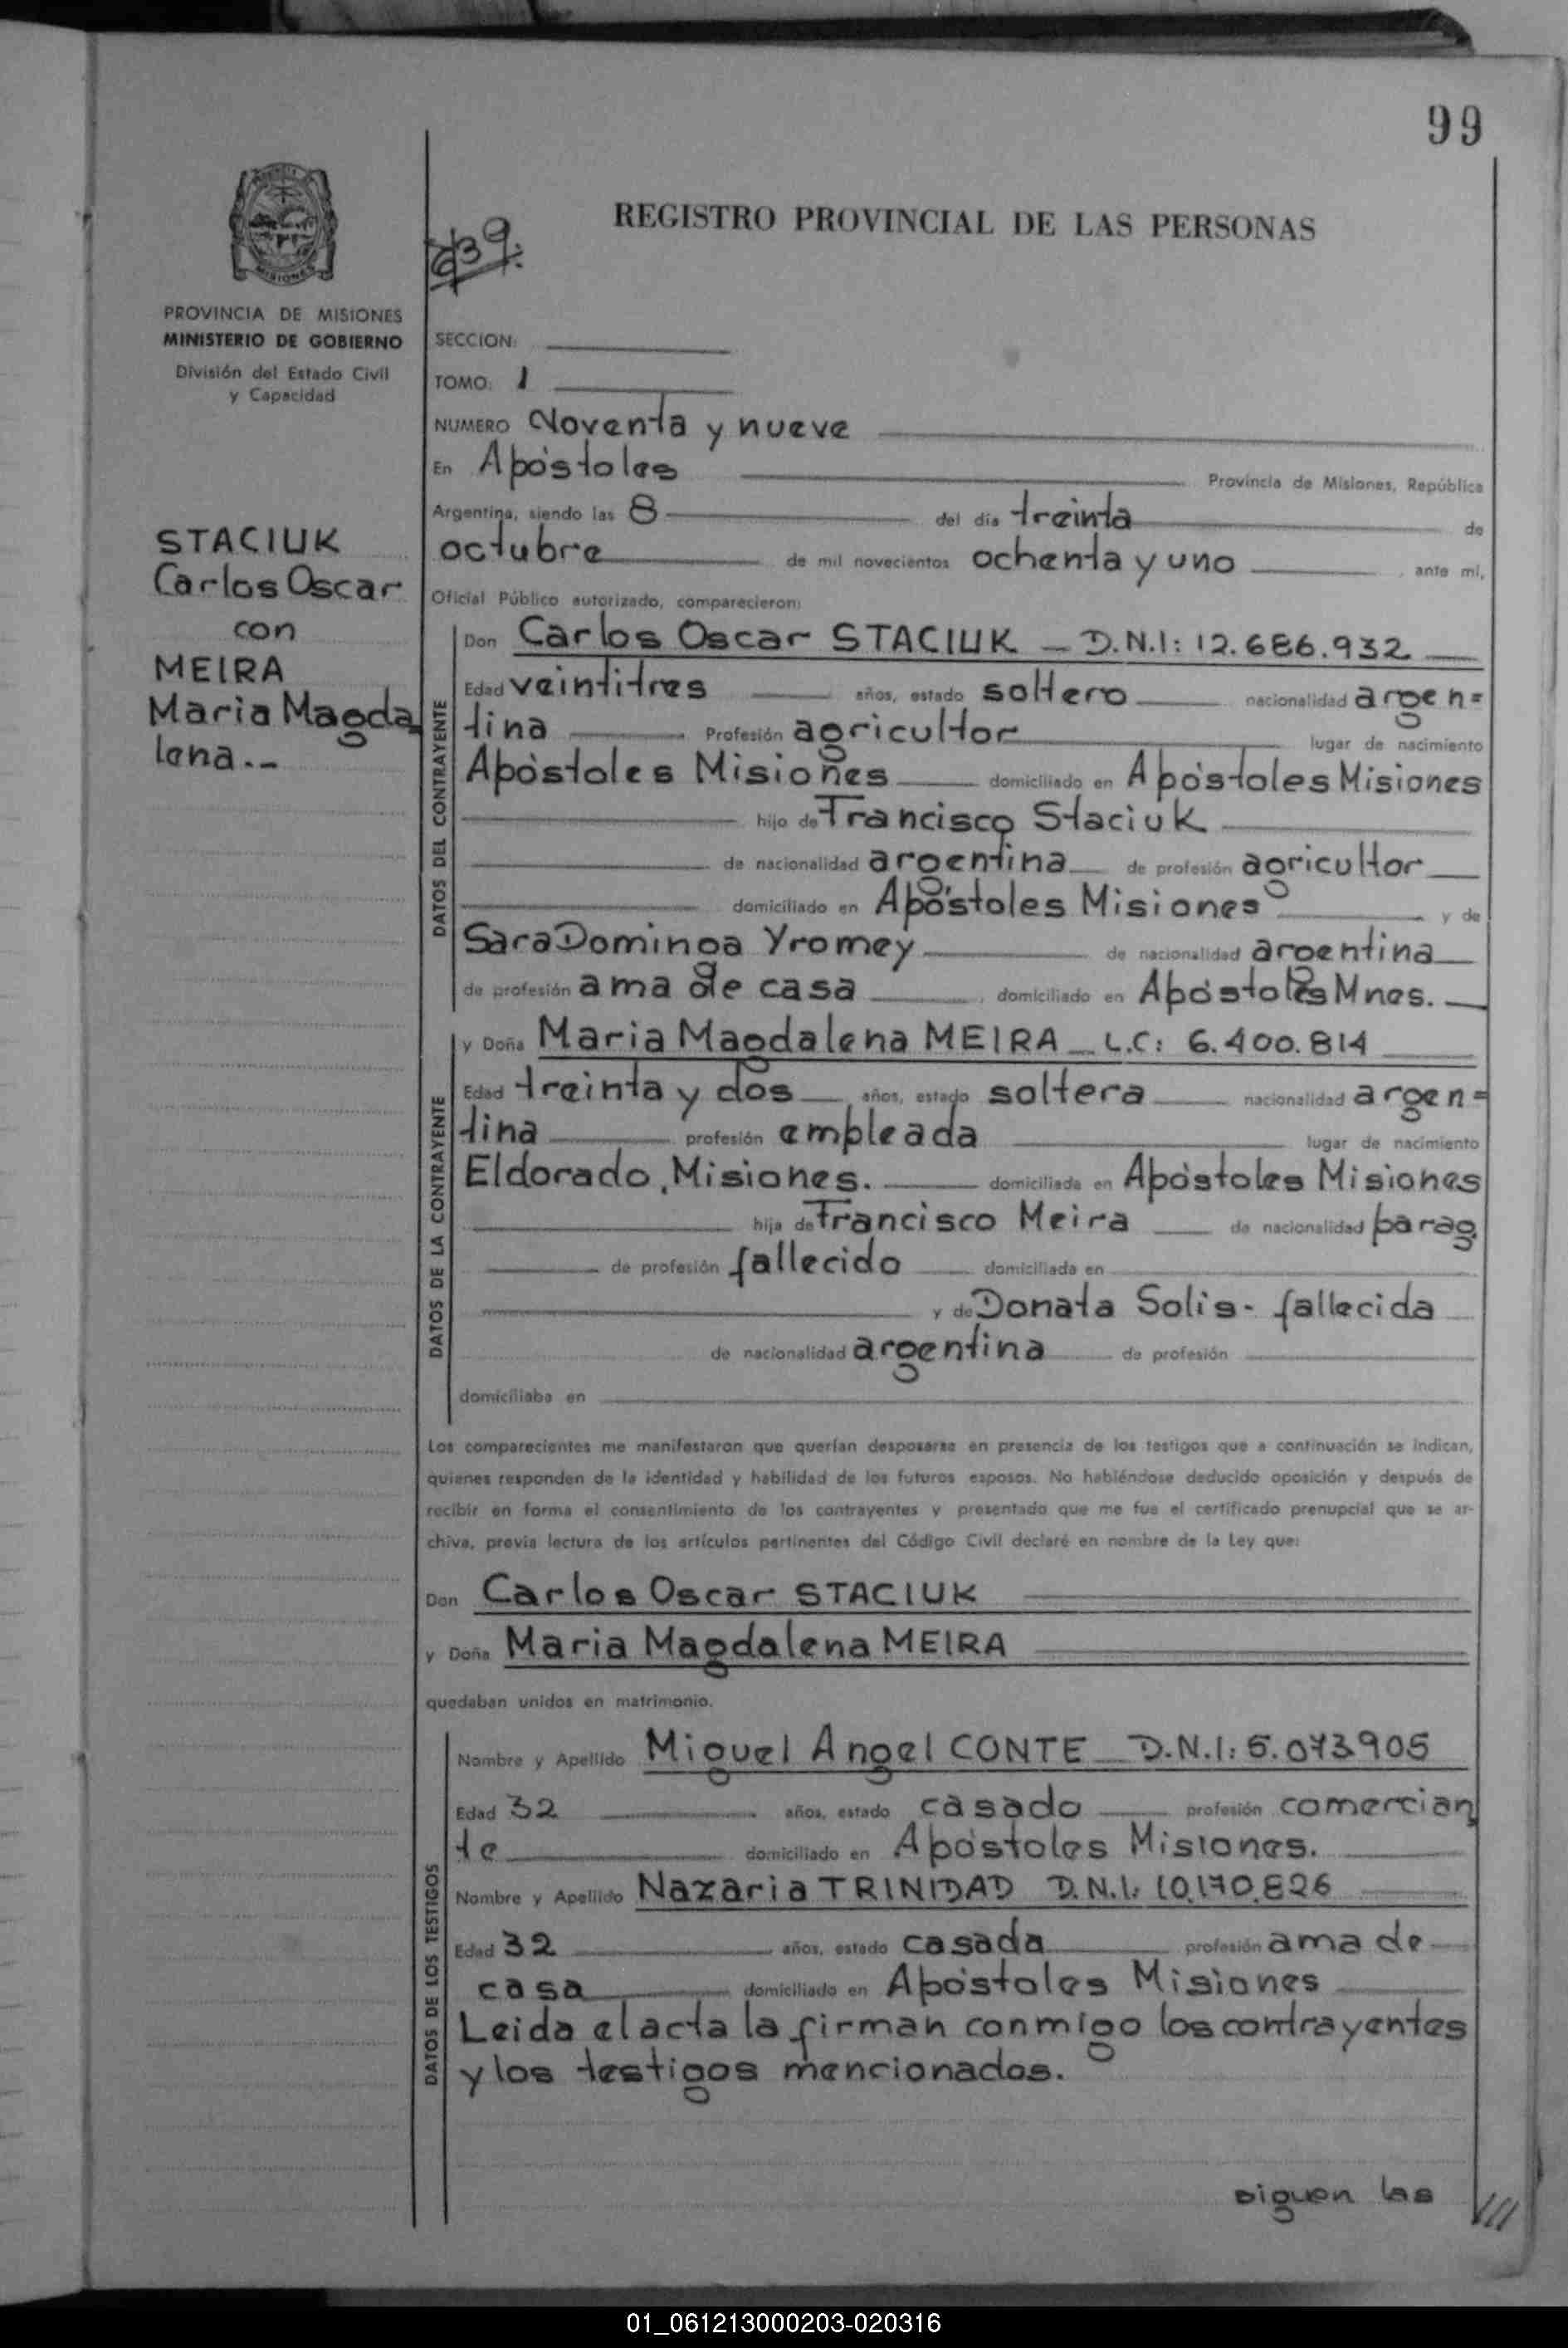 99
REGISTRO PROVINCIAL DE LAS PERSONAS
MISIONES
PROVINCIA DE MISIONES
MINISTERIO DE GOBIERNO
División del Estado Civil
y Capacidad
STACIUK
Carlos Oscar
con
MEIRA
Maria Magda
lena.--
SECCION:
TOMO: 1
NUMERO Noventa y nueve
En Apóstoles Provincia de Misiones, República
Argentina, siendo las 8 del dia treinta de
octubre de mil novecientos ochenta y uno ante mí,
Oficial Público autorizado, comparecieron:
DATOS DEL CONTRAYENTE
Don Carlos Oscar STACIUK — D.N.I: 12.686.932
Edad veintitres años, estado soltero nacionalidad argen=
tina Profesión agricultor lugar de nacimiento
Apóstoles Misiones domiciliado en Apóstoles Misiones
hijo de Francisco Staciuk
de nacionalidad argentina de profesión agricultor
domiciliado en Apóstoles Misiones y de
Sara Dominga Yromey de nacionalidad argentina
de profesión ama de casa, domiciliado en Apóstoles Mnes.
DATOS DE LA CONTRAYENTE
y Doña Maria Magdalena MEIRA — L.C: 6.400.814
Edad treinta y dos años, estado soltera nacionalidad argen=
tina profesión empleada lugar de nacimiento
Eldorado, Misiones. domiciliada en Apóstoles Misiones
hija de Francisco Meira de nacionalidad parag.
de profesión fallecido domiciliada en
y de Donata Solis - fallecida
de nacionalidad argentina de profesión
domiciliaba en
Los comparecientes me manifestaron que querían desposarse en presencia de los testigos que a continuación se indican,
quienes responden de la identidad y habilidad de los futuros esposos. No habiéndose deducido oposición y después de
recibir en forma el consentimiento de los contrayentes y presentado que me fue el certificado prenupcial que se ar-
chiva, previa lectura de los artículos pertinentes del Código Civil declaré en nombre de la Ley que:
Don Carlos Oscar STACIUK
y Doña Maria Magdalena MEIRA
quedaban unidos en matrimonio.
DATOS DE LOS TESTIGOS
Nombre y Apellido Miguel Angel CONTE D.N.I: 5.073905
Edad 32 años, estado casado profesión comercian
te domiciliado en Apóstoles Misiones.
Nombre y Apellido Nazaria TRINIDAD D.N.I. 10.170.826
Edad 32 años, estado casada profesión ama de
casa domiciliado en Apóstoles Misiones
Leida el acta la firman conmigo los contrayentes
y los testigos mencionados.
siguen las ///
01_061213000203-020316